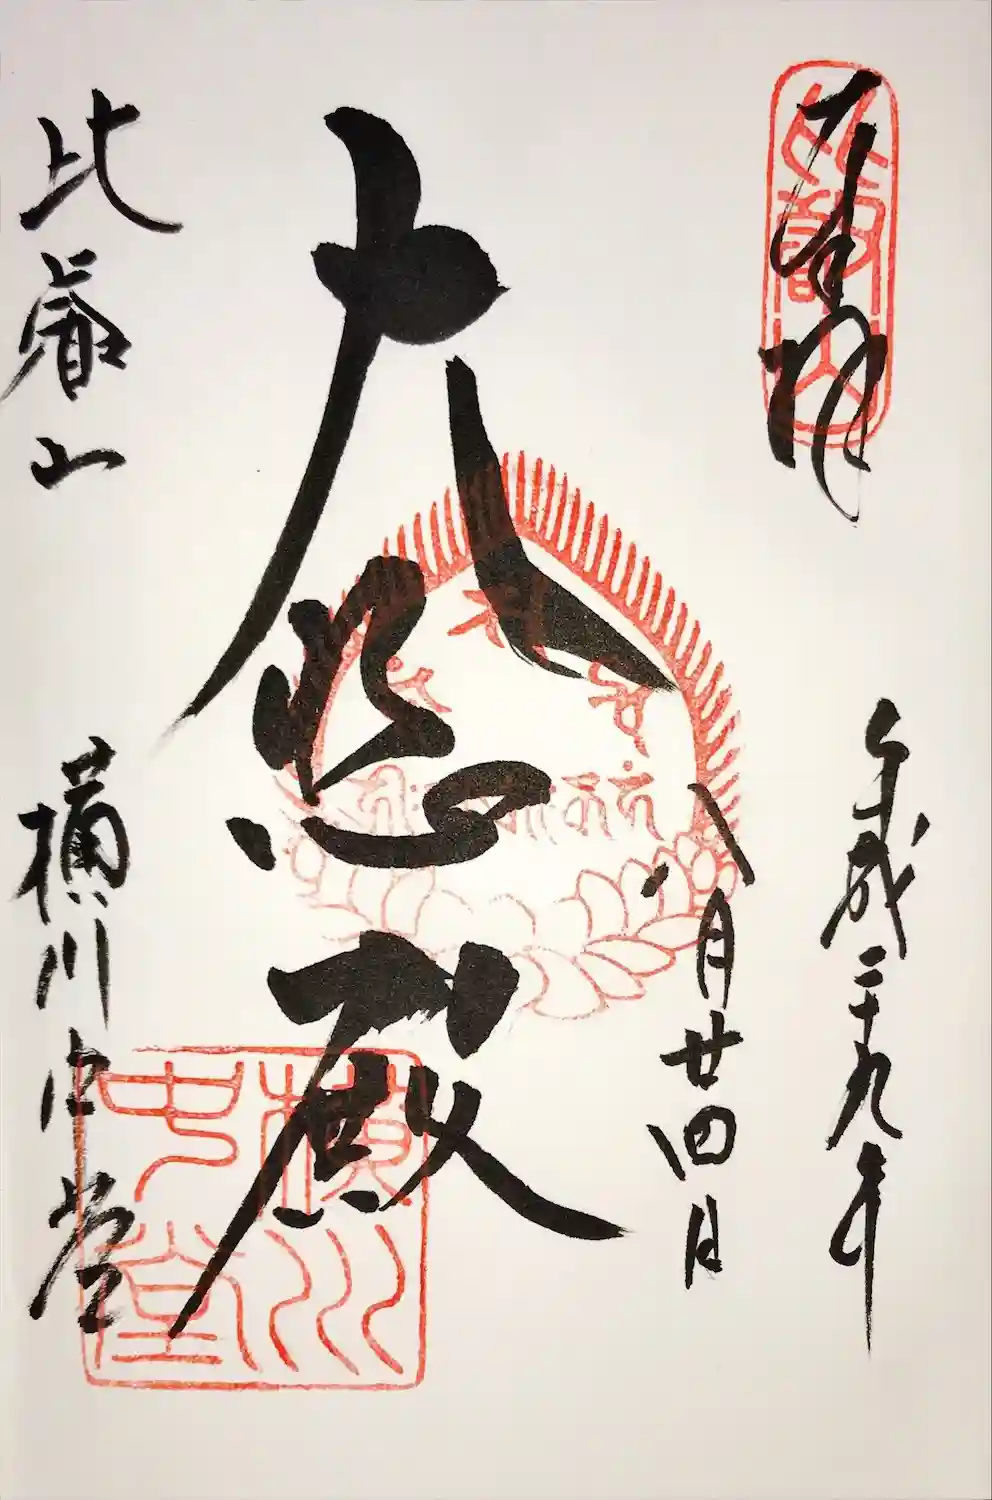 奉拝
比叡山
平成二十九年
八月廿四日
大悲殿
比叡山
横川中堂
横川中堂